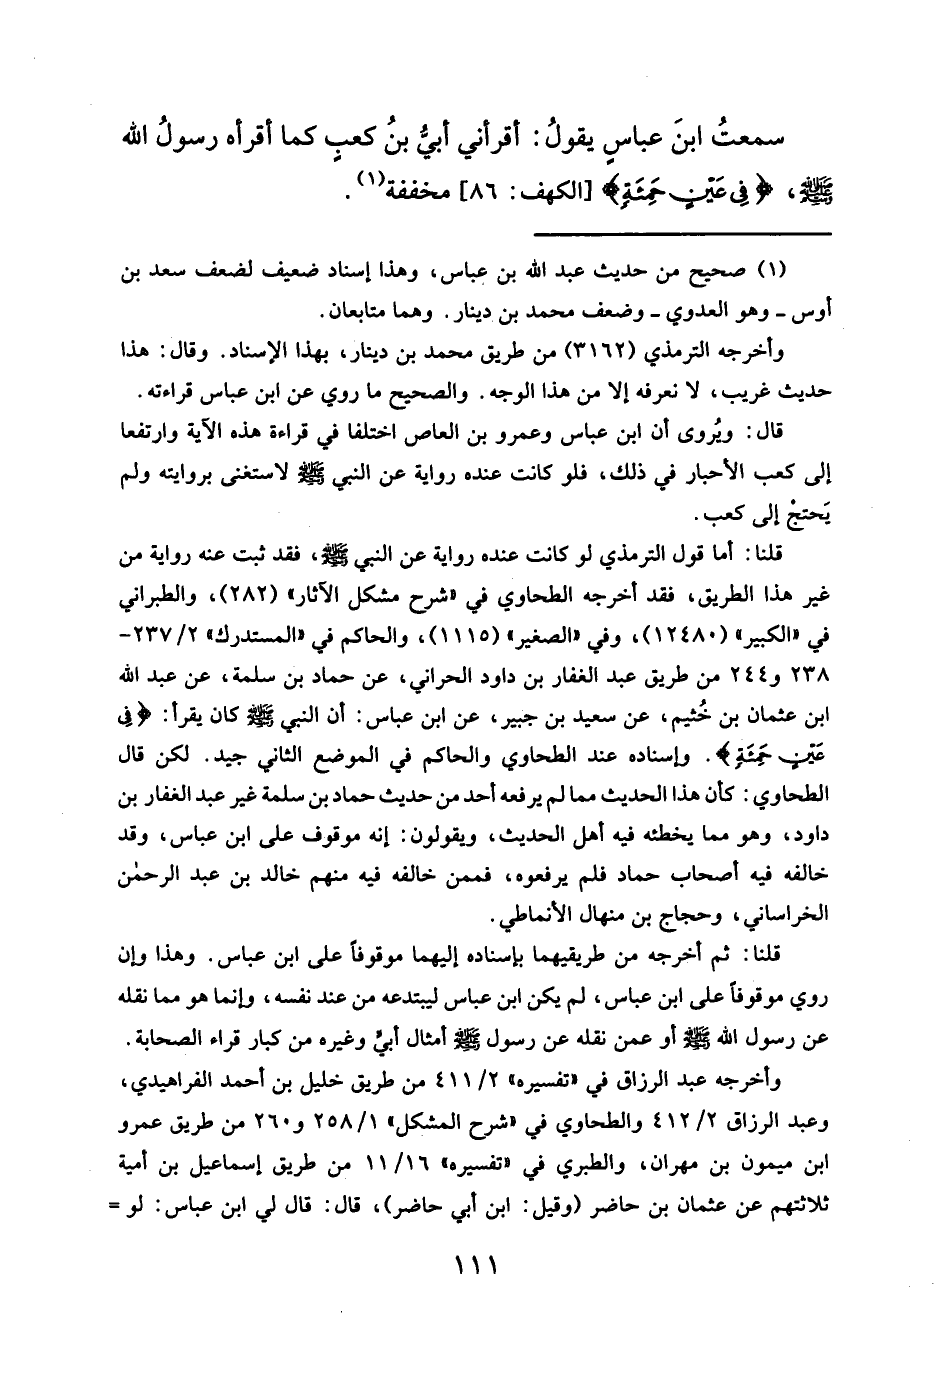 سمعتُ ابنَ عباسٍ يقولُ: أقرأني أُبيُّ بنُ كعبٍ كما أقرأه رسولُ الله
ﷺ، ﴿فِي عَيْنٍ حَمِئَةٍ﴾ [الكهف: ٨٦] مخففة(١).
(١) صحيح من حديث عبد الله بن عباس، وهذا إسناد ضعيف لضعف سعد بن
أوس ـ وهو العدوي ـ وضعف محمد بن دينار. وهما متابعان.
وأخرجه الترمذي (٣١٦٢) من طريق محمد بن دينار، بهذا الإسناد. وقال: هذا
حديث غريب، لا نعرفه إلا من هذا الوجه. والصحيح ما روي عن ابن عباس قراءته.
قال: ويُروى أن ابن عباس وعمرو بن العاص اختلفا في قراءة هذه الآية وارتفعا
إلى كعب الأحبار في ذلك، فلو كانت عنده رواية عن النبي ﷺ لاستغنى بروايته ولم
يَحتجْ إلى كعب.
قلنا: أما قول الترمذي لو كانت عنده رواية عن النبي ﷺ، فقد ثبت عنه رواية من
غير هذا الطريق، فقد أخرجه الطحاوي في «شرح مشكل الآثار» (٢٨٢)، والطبراني
في «الكبير» (١٢٤٨٠)، وفي «الصغير» (١١١٥)، والحاكم في «المستدرك» ٢/ ٢٣٧-
٢٣٨ و٢٤٤ من طريق عبد الغفار بن داود الحراني، عن حماد بن سلمة، عن عبد الله
ابن عثمان بن خُثيم، عن سعيد بن جبير، عن ابن عباس: أن النبي ﷺ كان يقرأ: ﴿فِي
عَيْنٍ حَمِئَةٍ﴾. وإسناده عند الطحاوي والحاكم في الموضع الثاني جيد. لكن قال
الطحاوي: كأن هذا الحديث مما لم يرفعه أحد من حديث حماد بن سلمة غير عبد الغفار بن
داود، وهو مما يخطئه فيه أهل الحديث، ويقولون: إنه موقوف على ابن عباس، وقد
خالفه فيه أصحاب حماد فلم يرفعوه، فممن خالفه فيه منهم خالد بن عبد الرحمٰن
الخراساني، وحجاج بن منهال الأنماطي.
قلنا: ثم أخرجه من طريقيهما بإسناده إليهما موقوفاً على ابن عباس. وهذا وإن
روي موقوفاً على ابن عباس، لم يكن ابن عباس ليبتدعه من عند نفسه، وإنما هو مما نقله
عن رسول الله ﷺ أو عمن نقله عن رسول ﷺ أمثال أبيٍّ وغيره من كبار قراء الصحابة.
وأخرجه عبد الرزاق في «تفسيره» ٢/ ٤١١ من طريق خليل بن أحمد الفراهيدي،
وعبد الرزاق ٢/ ٤١٢ والطحاوي في «شرح المشكل» ١/ ٢٥٨ و٢٦٠ من طريق عمرو
ابن ميمون بن مهران، والطبري في «تفسيره» ١٦/ ١١ من طريق إسماعيل بن أمية
ثلاثتهم عن عثمان بن حاضر (وقيل: ابن أبي حاضر)، قال: قال لي ابن عباس: لو =
١١١